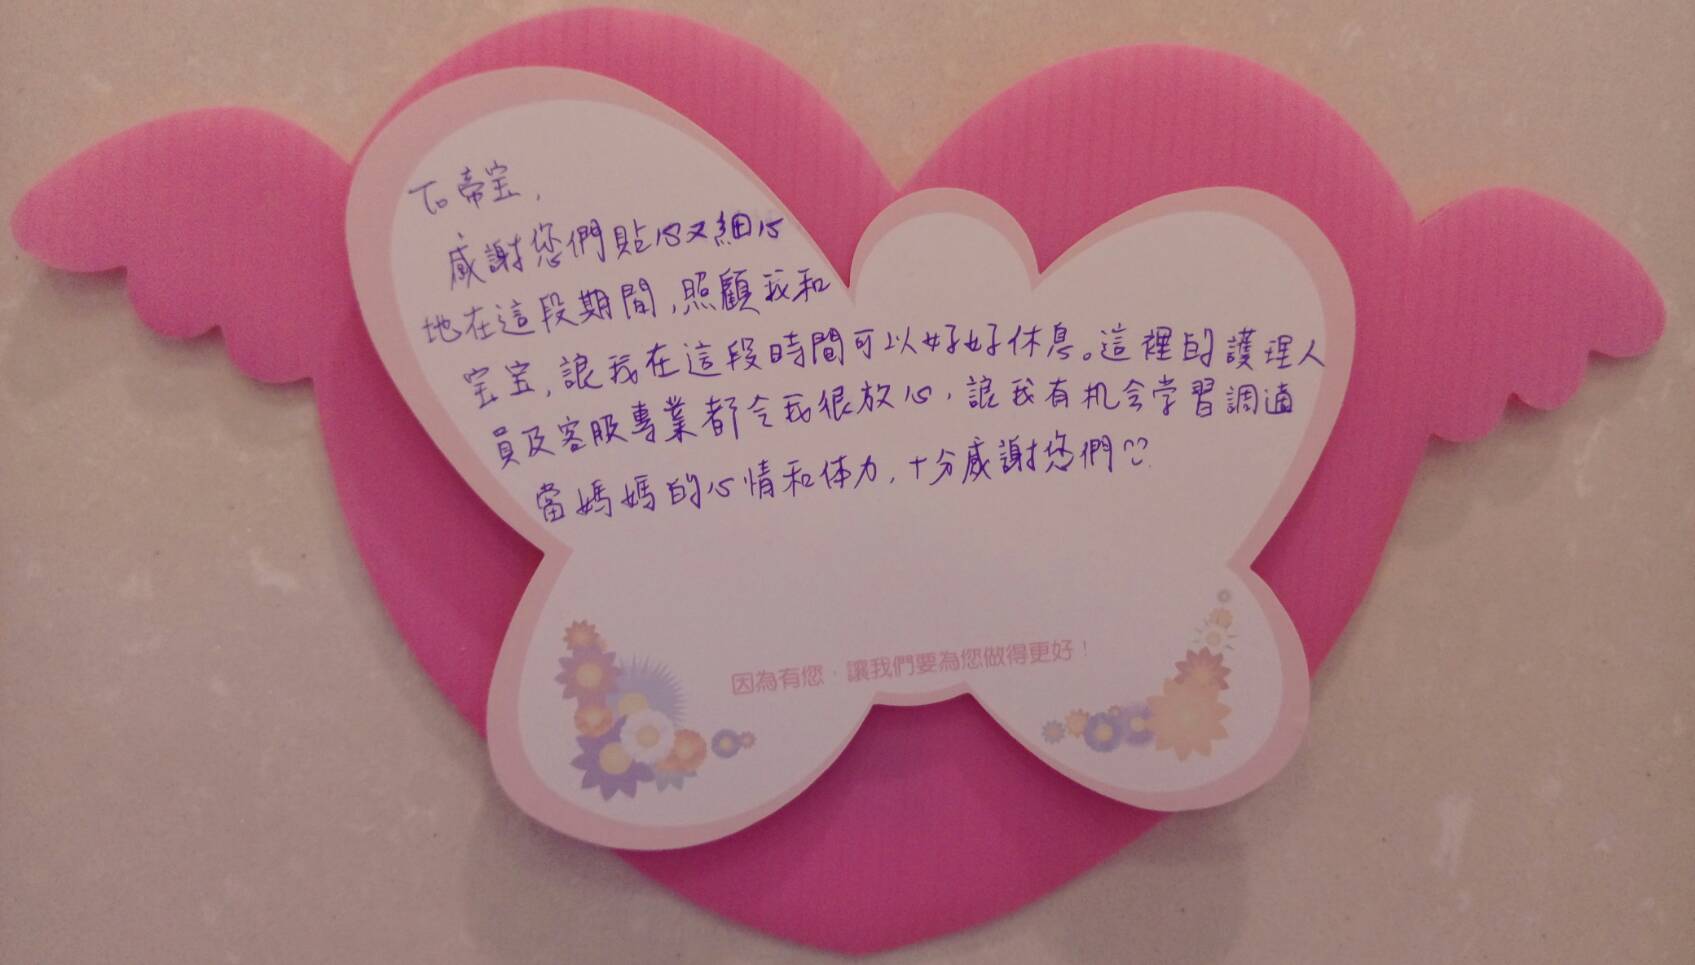 To 帝宝,
感謝您們貼心又細心
地在這段期間,照顧我和
宝宝,讓我在這段時間可以好好休息。這裡的護理人
員及客服專業都令我很放心,讓我有机会学習調適
當媽媽的心情和体力,十分感謝您們♡
因為有您,讓我們要為您做得更好!